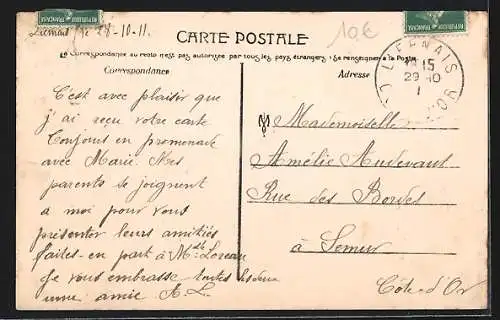 Liernais le 28-10-11.
10€
CARTE POSTALE
La Correspondance au recto n'est pas autorisée par tous les pays étrangers (Se renseigner à la Poste)
Correspondance
Adresse
LIERNAIS
15
29 10
D'OR
C'est avec plaisir que
j'ai reçu votre carte
Toujours en promenade
avec Marie. Mes
parents se joignent
a moi pour vous
présenter leurs amitiés
faites-en part à Mlle Loreau
Je vous embrasse toutes les deux
une amie A. L.
Mademoiselle
Amélie Audevaut
Rue des Bordes
à Semur
Côte-d'Or